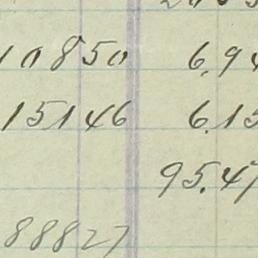 10850 6,94
15146 6.15
95.47
88827